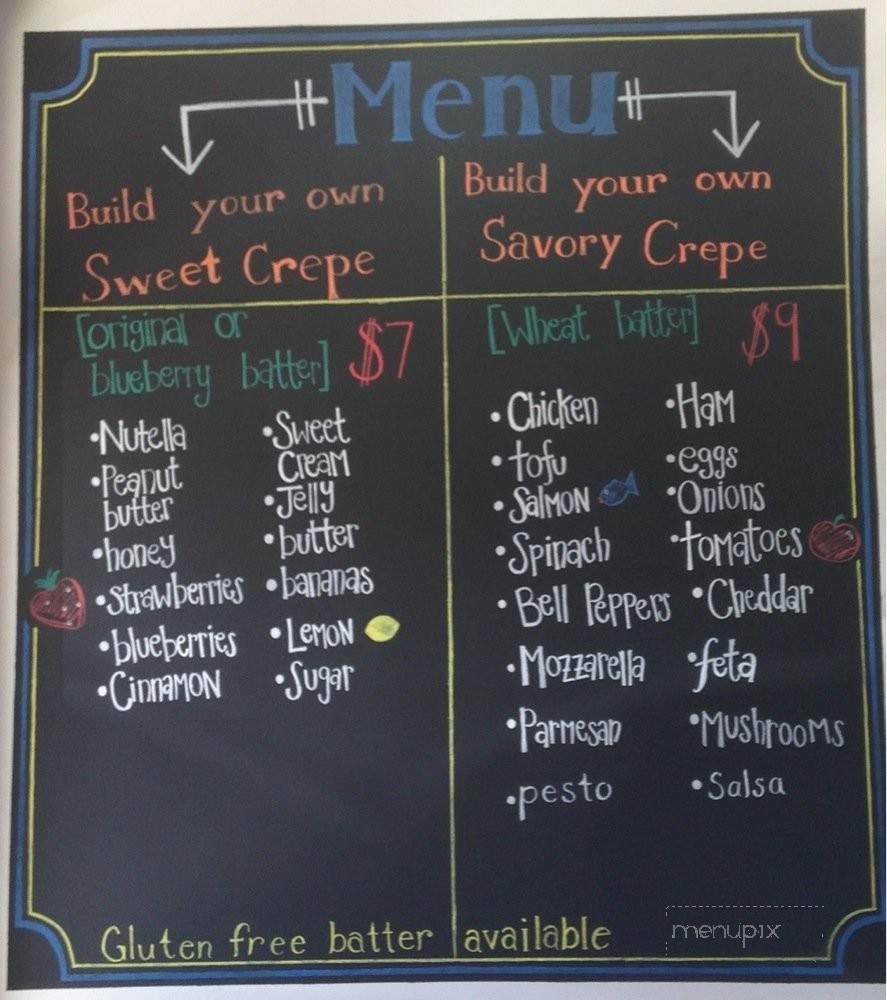 Menu
Build your own
Sweet Crepe
[original or
blueberry batter] $7
•Nutella
•Peanut
butter
•honey
•Strawberries
•blueberries
•Cinnamon
•Sweet
Cream
•Jelly
•butter
•bananas
•Lemon
•Sugar
Build your own
Savory Crepe
[Wheat batter] $9
•Chicken
•tofu
•Salmon
•Spinach
•Bell Peppers
•Mozzarella
•Parmesan
•pesto
•Ham
•eggs
•Onions
•tomatoes
•Cheddar
•feta
•Mushrooms
•Salsa
Gluten free batter available
menupix